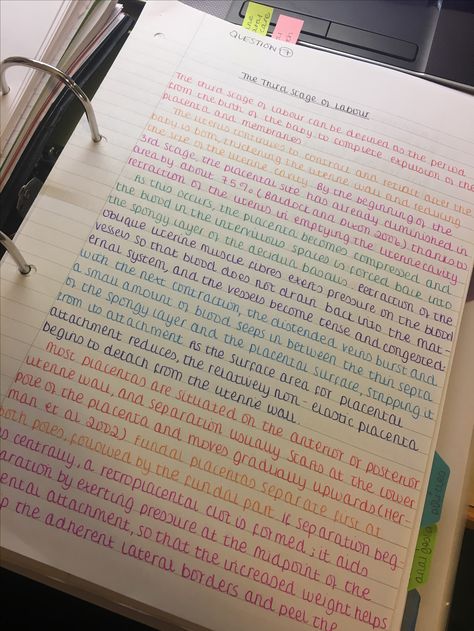 QUESTION 7
THE THIRD STAGE OF LABOUR
The third stage of labour can be defined as the period
from the birth of the baby to complete expulsion of the
placenta and membranes.
The uterus continues to contract and retract after the
baby is born, thickening the uterine wall and reducing
the size of the uterine cavity. By the beginning of the
3rd stage, the placental site has already diminished in
area by about 75% (Baldock and Dixon 2006) thanks to
retraction of the uterus in emptying the uterine cavity
As this occurs, the placenta becomes compressed and
the blood in the intervillous spaces is forced back into
the spongy layer of the decidua basalis. Retraction of the
oblique uterine muscle fibres exerts pressure on the blood
vessels so that blood does not drain back into the mat-
ernal system, and the vessels become tense and congested.
with the next contraction, the distended veins burst and
a small amount of blood seeps in between the thin septa
of the spongy layer and the placental surface, stripping it
from its attachment. As the surface area for placental
attachment reduces, the relatively non-elastic placenta
begins to detach from the uterine wall.
Most placentas are situated on the anterior or posterior
uterine wall, and separation usually starts at the lower
pole of the placenta and moves gradually upwards (Her-
man et al 2002) Fundal placentas separate first at
both poles, followed by the fundal part. If separation beg-
s centrally, a retroplacental clot is formed; it aids
aration by exerting pressure at the midpoint of the
ental attachment, so that the increased weight helps
p the adherent lateral borders and peel the
analgesia